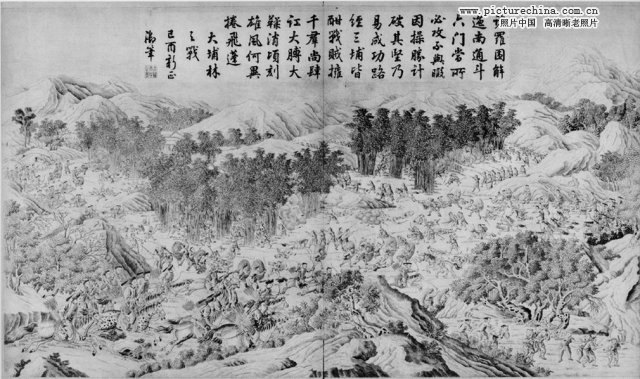 www.picturechina.com.cn
照片中国 高清晰老照片
羅圍解
通斗
六门當所
必攻不與暇
因操勝計
破其堅乃
易成功路
經三埔皆
酣戰賊擁
千羣尚肆
訌大膊大
消頃刻
雄風何異
捲飛蓬
大埔林
之戰
己酉新正
御筆